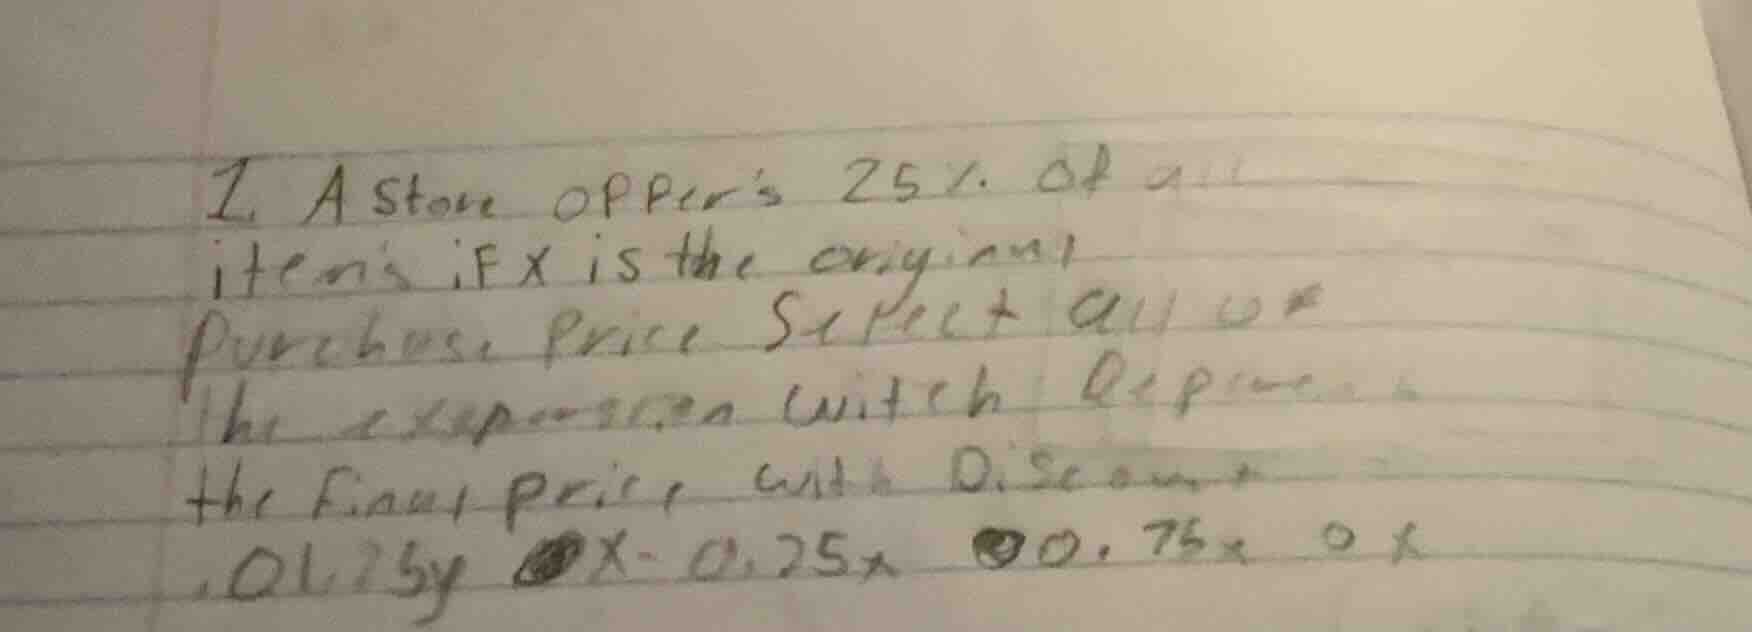 1. A store opper's 25% of all
item's iF X is the original
purchase price Select all of
the with
the final price with Discount
X - 0.25x 0.75x o x